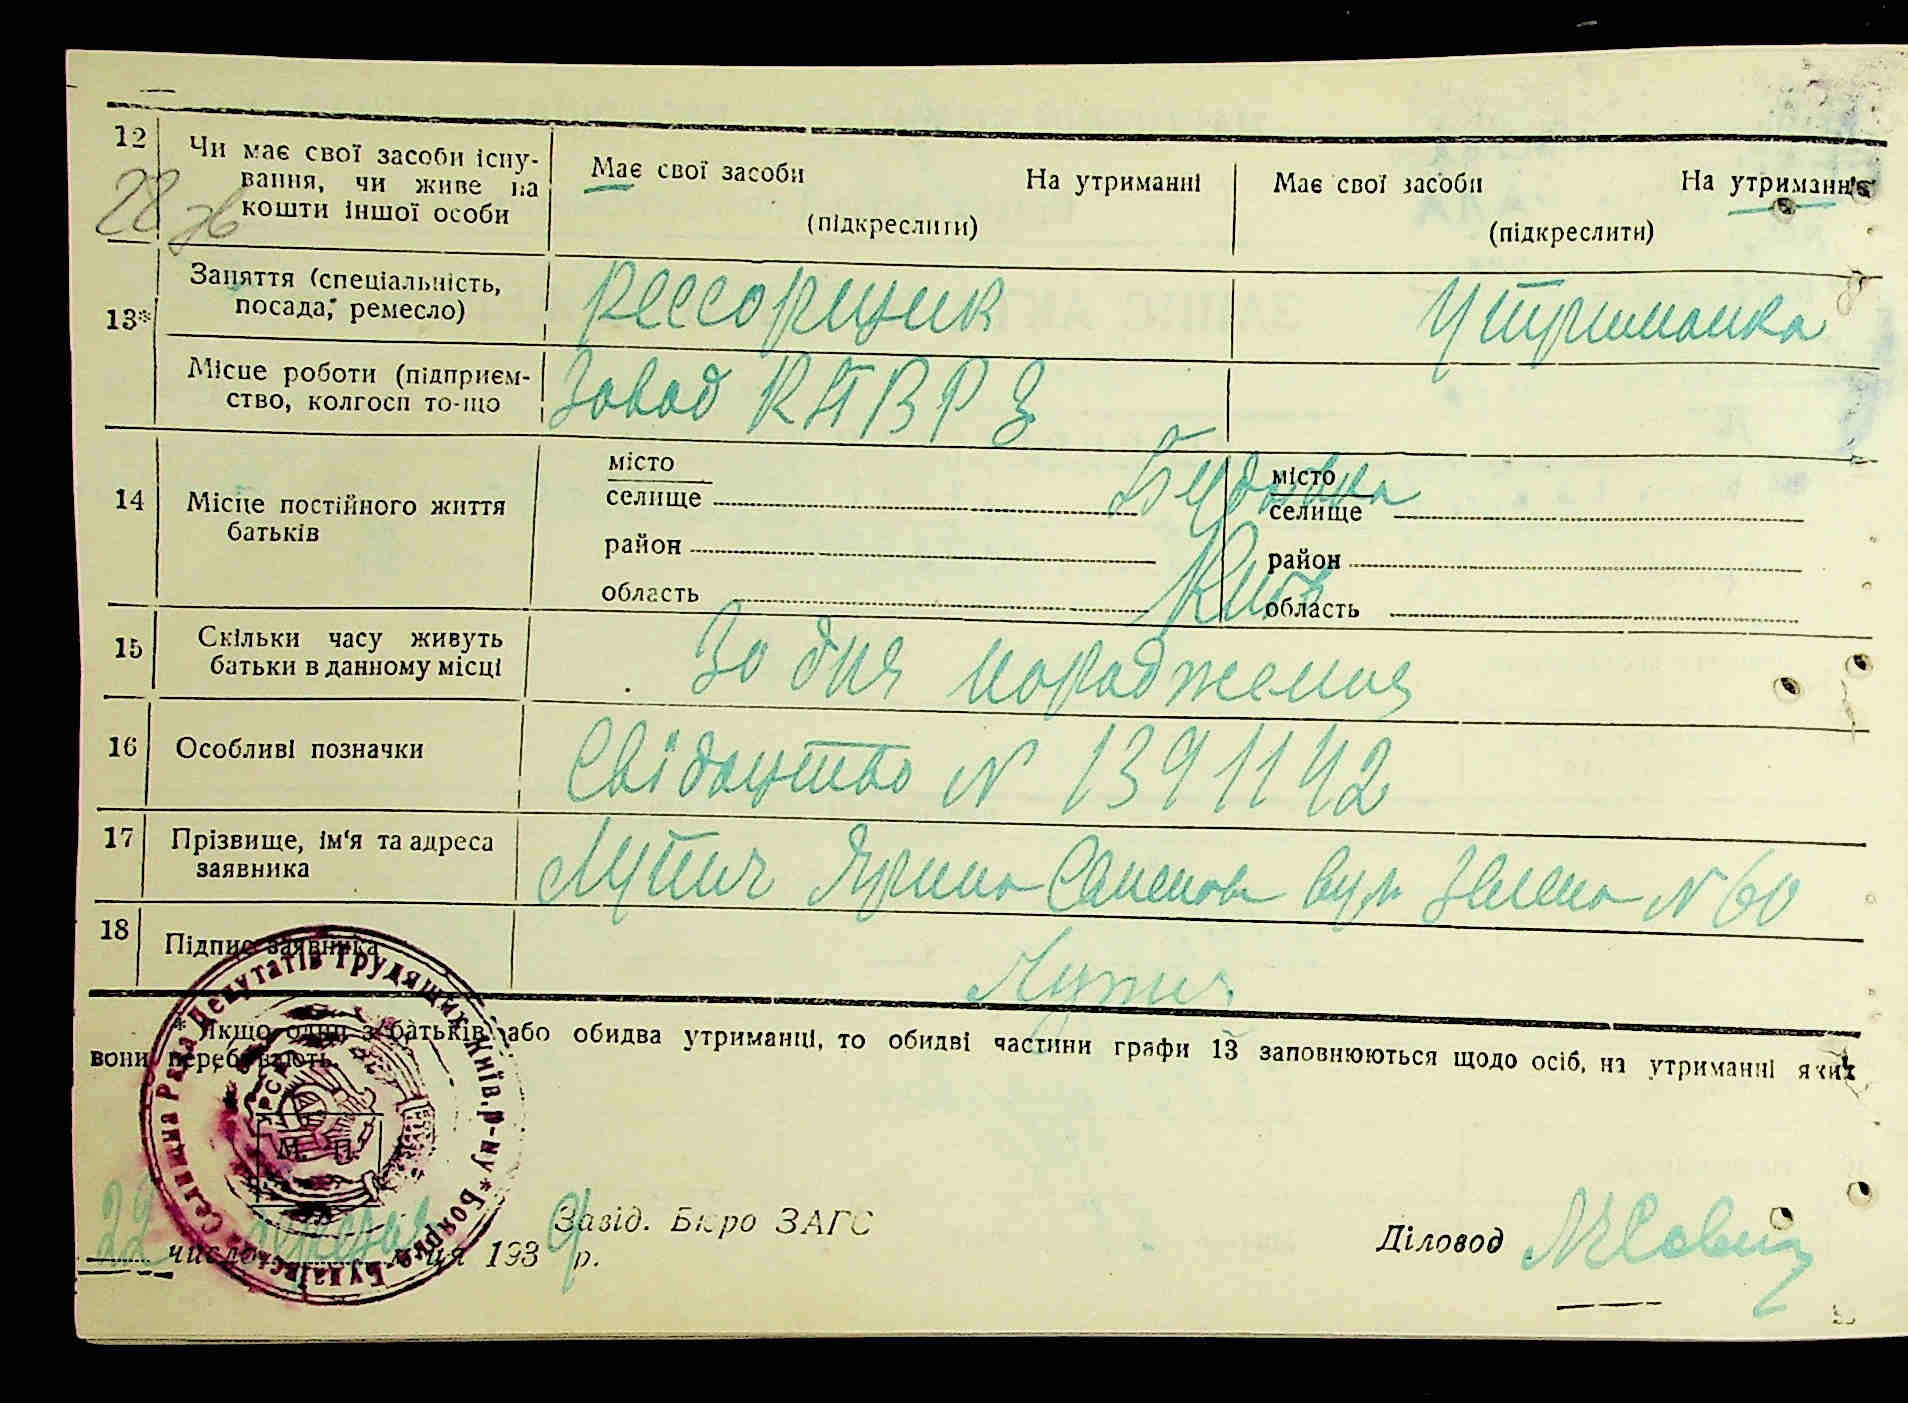 12 Чи має свої засоби існу-
вання, чи живе на
кошти іншої особи
Має свої засоби На утриманні
(підкреслити)
Має свої засоби На утриманні
(підкреслити)
28
13* Заняття (спеціальність,
посада, ремесло)
рессорщик
Утриманка
Місце роботи (підприєм-
ство, колгосп то-що
Завод КПВРЗ
14 Місце постійного життя
батьків
місто
селище
район
область
місто
селище
район
область
Будаївка
Київ
15 Скільки часу живуть
батьки в данному місці
Зо дня народження
16 Особливі позначки
Свідоцтво N 1391142
17 Прізвище, ім'я та адреса
заявника
Лупич Ярина Семенов вул Зелена N 60
18 Підпис заявника
Лупич
* Якщо один з батьків або обидва утриманці, то обидві частини графи 13 заповнюються щодо осіб, на утриманні яких
вони перебувають.
Селищна Рада Депутатів Трудящих Київ. р-ну * Боярка-Будаївська
УРСР
М. П.
22 число березня місяця 1939 р.
Завід. Бюро ЗАГС
Діловод